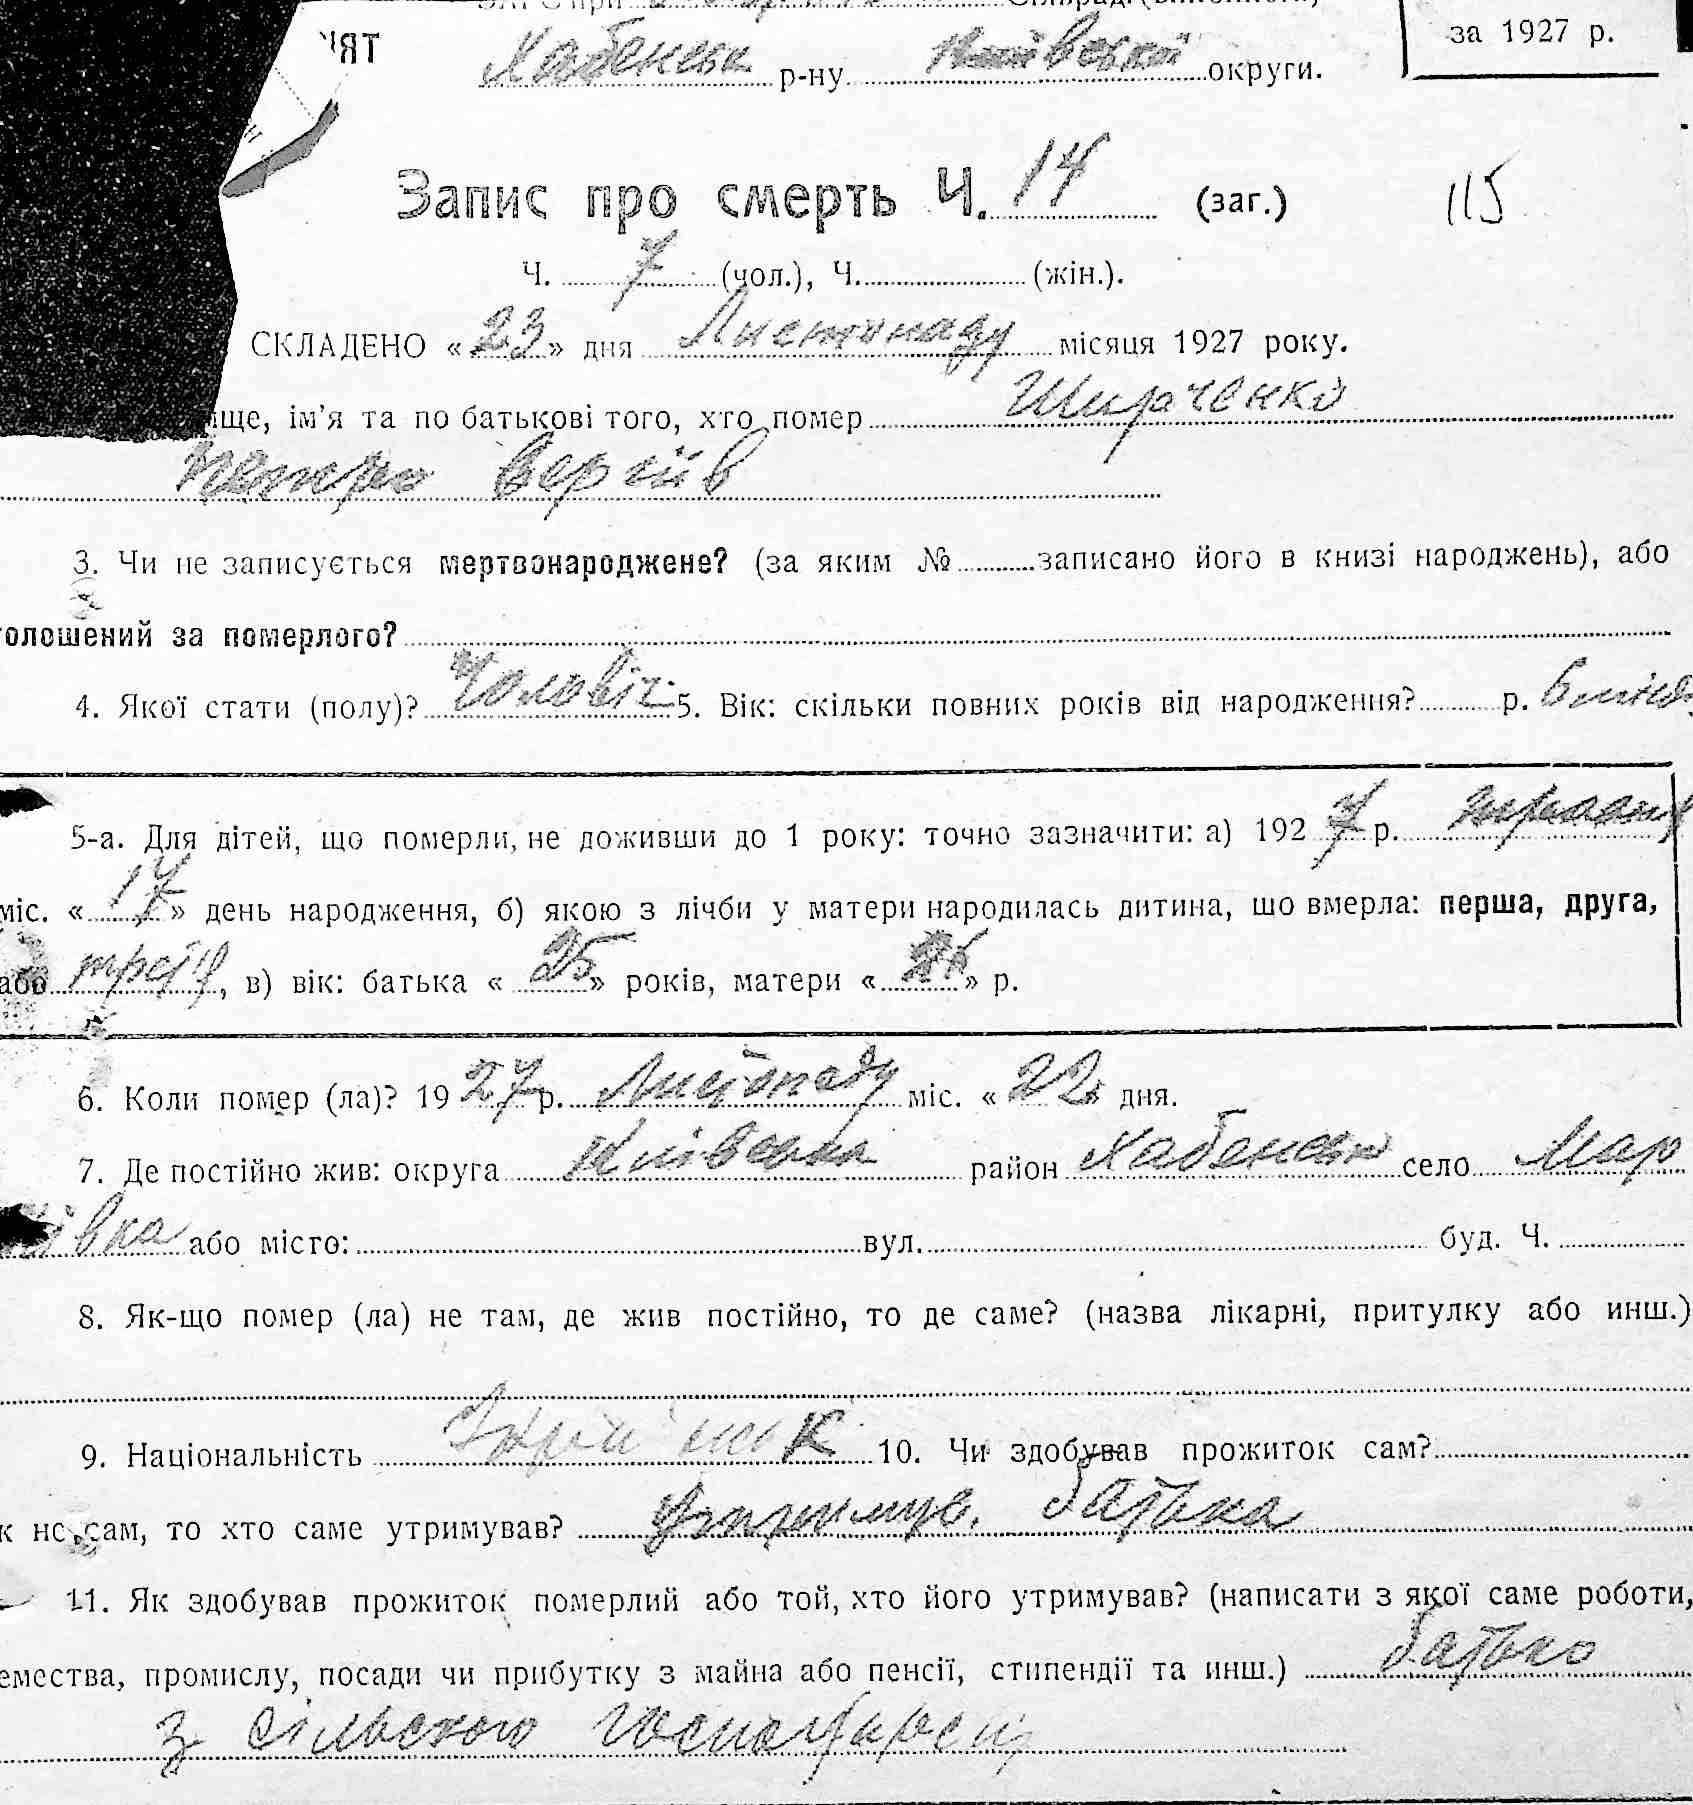 ЗАГС при Сільраді (
ЧЯТ
за 1927 р.
Хабенськ р-ну Київської округи.
Запис про смерть Ч. 14 (заг.)
115
Ч. 7 (чол.), Ч. (жін.).
СКЛАДЕНО «23» дня Листопаду місяця 1927 року.
ище, ім'я та по батькові того, хто помер Шираченко
Петро Сергіїв
3. Чи не записується мертвонароджене? (за яким № записано його в книзі народжень), або
голошений за померлого?
4. Якої стати (полу)? Чоловіч 5. Вік: скільки повних років від народження? р. 6 місяц
5-а. Для дітей, що померли, не доживши до 1 року: точно зазначити: а) 1927 р. травня
міс. «17» день народження, б) якою з лічби у матери народилась дитина, що вмерла: перша, друга,
або третя, в) вік: батька «25» років, матери «26» р.
6. Коли помер (ла)? 1927 р. Листопаду міс. «22» дня.
7. Де постійно жив: округа Київська район Хабенськ село Мар
івка або місто: вул. буд. Ч.
8. Як-що помер (ла) не там, де жив постійно, то де саме? (назва лікарні, притулку або инш.)
9. Національність 10. Чи здобував прожиток сам?
к не сам, то хто саме утримував? Утримув. батька
11. Як здобував прожиток померлий або той, хто його утримував? (написати з якої саме роботи,
емества, промислу, посади чи прибутку з майна або пенсії, стипендії та инш.) батько
з сільского господарсц